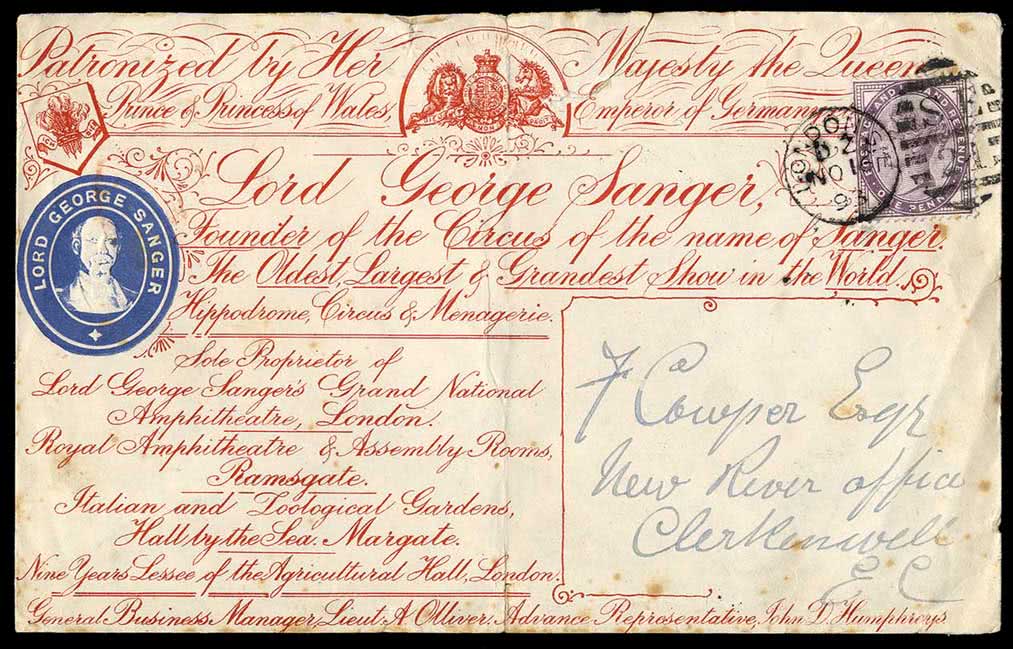 Patronized by Her Majesty the Queen
Prince & Princess of Wales, Emperor of Germany
LORD GEORGE SANGER
Lord George Sanger,
Founder of the Circus of the name of Sanger.
The Oldest, Largest & Grandest Show in the World.
Hippodrome, Circus & Menagerie.
Sole Proprietor of
Lord George Sanger's Grand National
Amphitheatre, London.
Royal Amphitheatre & Assembly Rooms,
Ramsgate.
Italian and Zoological Gardens,
Hall by the Sea. Margate.
Nine Years Lessee of the Agricultural Hall, London.
General Business Manager, Lieut. A. Olliver, Advance Representative, John D. Humphreys
LONDON
NO 1
POSTAGE AND INLAND REVENUE
ONE PENNY
F Cowper Esqr
New River office
Clerkenwell
E C